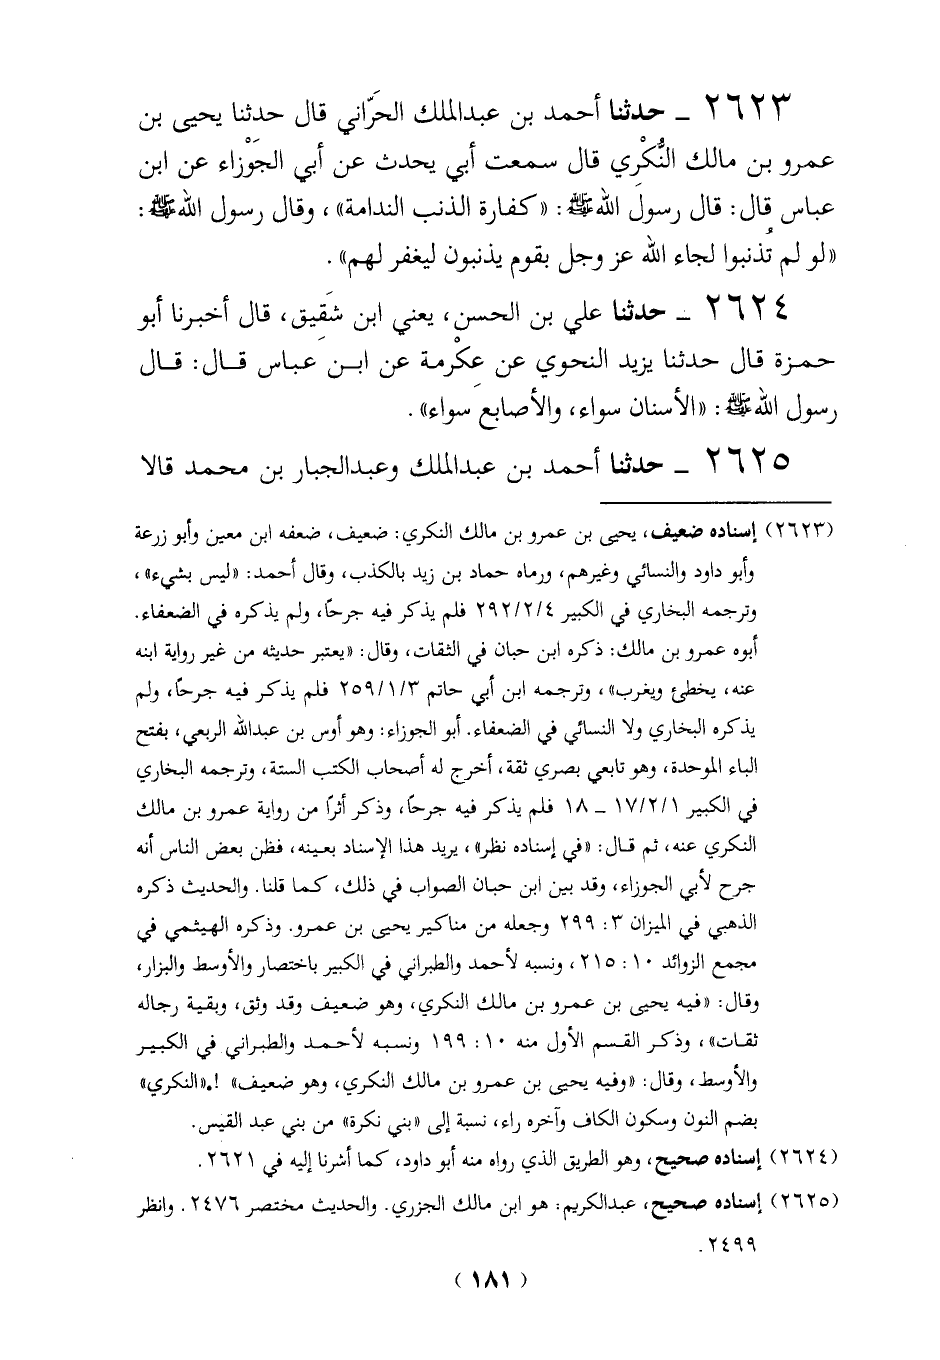 ٢٦٢٣ ــ حدثنا أحمد بن عبدالملك الحَرّاني قال حدثنا يحيى بن
عمرو بن مالك النُّكْري قال سمعت أبي يحدث عن أبي الجَوْزاء عن ابن
عباس قال: قال رسول الله ﷺ: «كفارة الذنب الندامة»، وقال رسول الله ﷺ:
«لو لم تُذنبوا لجاء الله عز وجل بقوم يذنبون ليغفر لهم».
٢٦٢٤ ــ حدثنا علي بن الحسن، يعني ابن شَقِيق، قال أخبرنا أبو
حمزة قال حدثنا يزيد النحوي عن عِكْرمة عن ابن عباس قال: قال
رسول الله ﷺ: «الأسنان سواء، والأصابع سَواء».
٢٦٢٥ ــ حدثنا أحمد بن عبدالملك وعبدالجبار بن محمد قالا
(٢٦٢٣) إسناده ضعيف، يحيى بن عمرو بن مالك النكري: ضعيف، ضعفه ابن معين وأبو زرعة
وأبو داود والنسائي وغيرهم، ورماه حماد بن زيد بالكذب، وقال أحمد: «ليس بشيء»،
وترجمه البخاري في الكبير ٢٩٢/٢/٤ فلم يذكر فيه جرحًا، ولم يذكره في الضعفاء.
أبوه عمرو بن مالك: ذكره ابن حبان في الثقات، وقال: «يعتبر حديثه من غير رواية ابنه
عنه، يخطئ ويغرب»، وترجمه ابن أبي حاتم ٢٥٩/١/٣ فلم يذكر فيه جرحًا، ولم
يذكره البخاري ولا النسائي في الضعفاء. أبو الجوزاء: وهو أوس بن عبدالله الربعي، بفتح
الباء الموحدة، وهو تابعي بصري ثقة، أخرج له أصحاب الكتب الستة، وترجمه البخاري
في الكبير ١٧/٢/١ ــ ١٨ فلم يذكر فيه جرحًا، وذكر أثرًا من رواية عمرو بن مالك
النكري عنه، ثم قال: «في إسناده نظر»، يريد هذا الإسناد بعينه، فظن بعض الناس أنه
جرح لأبي الجوزاء، وقد بين ابن حبان الصواب في ذلك، كما قلنا. والحديث ذكره
الذهبي في الميزان ٣: ٢٩٩ وجعله من مناكير يحيى بن عمرو. وذكره الهيثمي في
مجمع الزوائد ١٠: ٢١٥، ونسبه لأحمد والطبراني في الكبير باختصار والأوسط والبزار،
وقال: «فيه يحيى بن عمرو بن مالك النكري، وهو ضعيف وقد وثق، وبقية رجاله
ثقات»، وذكر القسم الأول منه ١٠: ١٩٩ ونسبه لأحمد والطبراني في الكبير
والأوسط، وقال: «وفيه يحيى بن عمرو بن مالك النكري، وهو ضعيف» !.«النكري»
بضم النون وسكون الكاف وآخره راء، نسبة إلى «بني نكرة» من بني عبد القيس.
(٢٦٢٤) إسناده صحيح، وهو الطريق الذي رواه منه أبو داود، كما أشرنا إليه في ٢٦٢١.
(٢٦٢٥) إسناده صحيح، عبدالكريم: هو ابن مالك الجزري. والحديث مختصر ٢٤٧٦. وانظر
٢٤٩٩.
(١٨١)